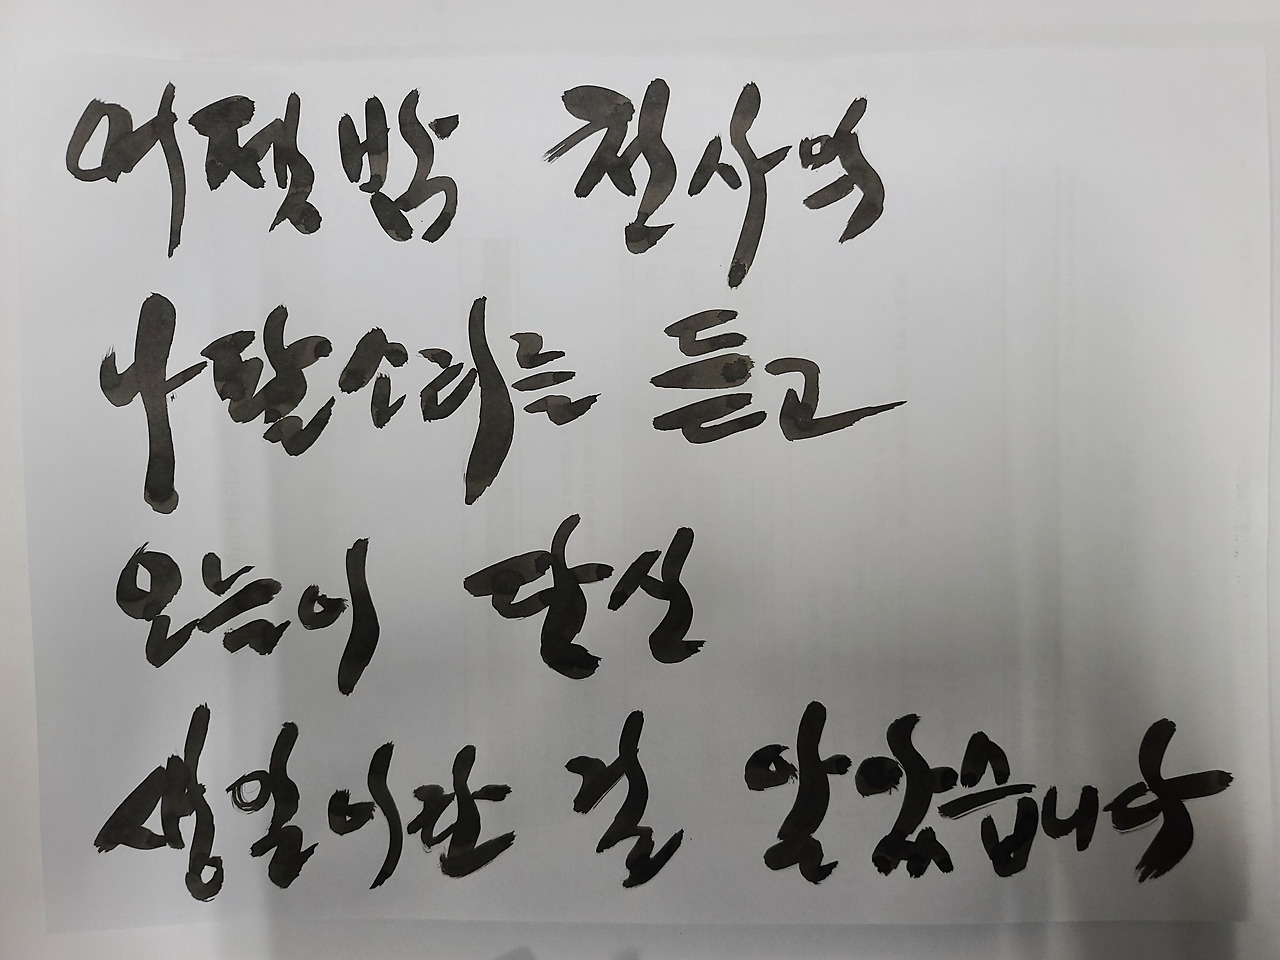 어젯밤 천사역
나팔소리는 듣고
오늘이 당신
생일이란 걸 알았습니다